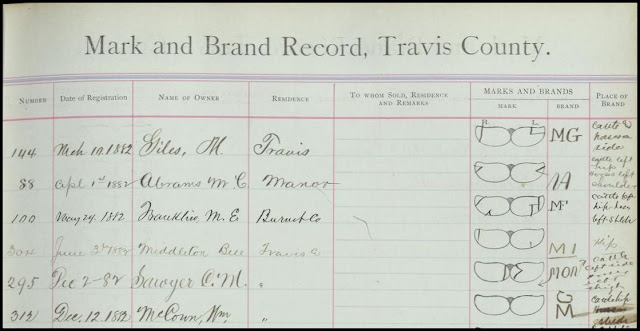 Mark and Brand Record, Travis County.
MARKS AND BRANDS
NUMBER DATE OF REGISTRATION NAME OF OWNER RESIDENCE TO WHOM SOLD, RESIDENCE AND REMARKS MARK BRAND PLACE OF BRAND
R L
144 Mch 10, 1882 Giles, M. Travis MG cattle & horses side
88 Apl 1st 1882 Abrams M C. Manor cattle left hip horses left shoulder
100 May 24. 1882 Franklin, M. E Burnet Co cattle left hip
304 June 3d 1882 Middleton Bill Travis Co MI Hip
295 Dec 2-82 Sawyer C. M. " MON cattle left side left thigh
312 Dec. 12. 1882 McCown, Wm. "